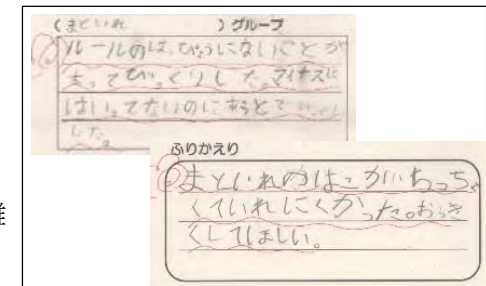 (まといれ )グループ
ルールのは、ひょうにないことが
あってびっくりした。マイナスに
はいってないのに
した。
ふりかえり
まといれのはこがいちっちゃ
くていれにくかった。おおき
くしてほしい。